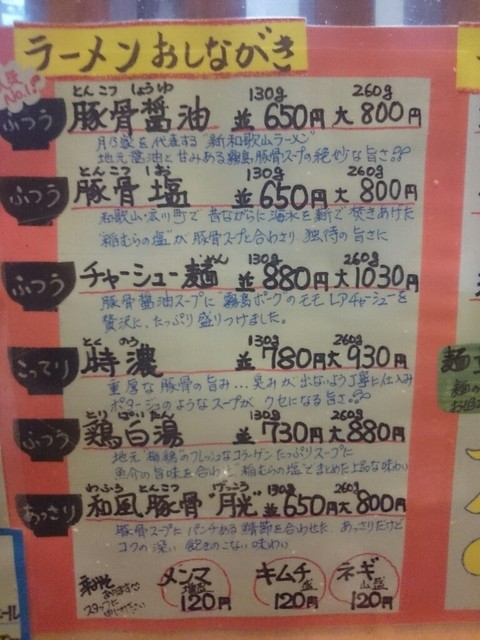 ラーメンおしながき
人気No.1!
ふつう
とんこつ しょうゆ
豚骨醤油 130g 並650円 260g 大800円
月の家を代表する"新和歌山ラーメン"
地元醤油と甘みある霧島豚骨スープの絶妙な旨さ
ふつう
とんこつ しお
豚骨塩 130g 並650円 260g 大800円
和歌山・衣川町で昔ながらに海水を薪で焚きあげた
"稲むらの塩"が豚骨スープと合わさり 独特の旨さに
ふつう
チャーシュー麺 めん 130g 並880円 260g 大1030円
豚骨醤油スープに 霧島ポークのモモレアチャーシューを
贅沢に、たっぷり盛りつけました。
こってり
とく のう
特濃 130g 並780円 260g 大930円
重厚な豚骨の旨み…臭みが出ないよう丁寧に仕込み
ポタージュのようなスープが クセになる旨さ
ふつう
とり ぱいたん
鶏白湯 130g 並730円 260g 大880円
地元 梅鶏のフレッシュなコラーゲンたっぷりスープに
魚介の旨味を合わせ"稲むらの塩"でまとめた上品な味わい
あっさり
わふう とんこつ げっこう
和風豚骨"月光" 130g 並650円 260g 大800円
豚骨スープに パンチある鯖節を合わせた、あっさりだけど
コクの深い 飽きのこない味わい
メンマ 増量 120円
キムチ 盛 120円
ネギ 山盛 120円
スタッフに
麺
麺の